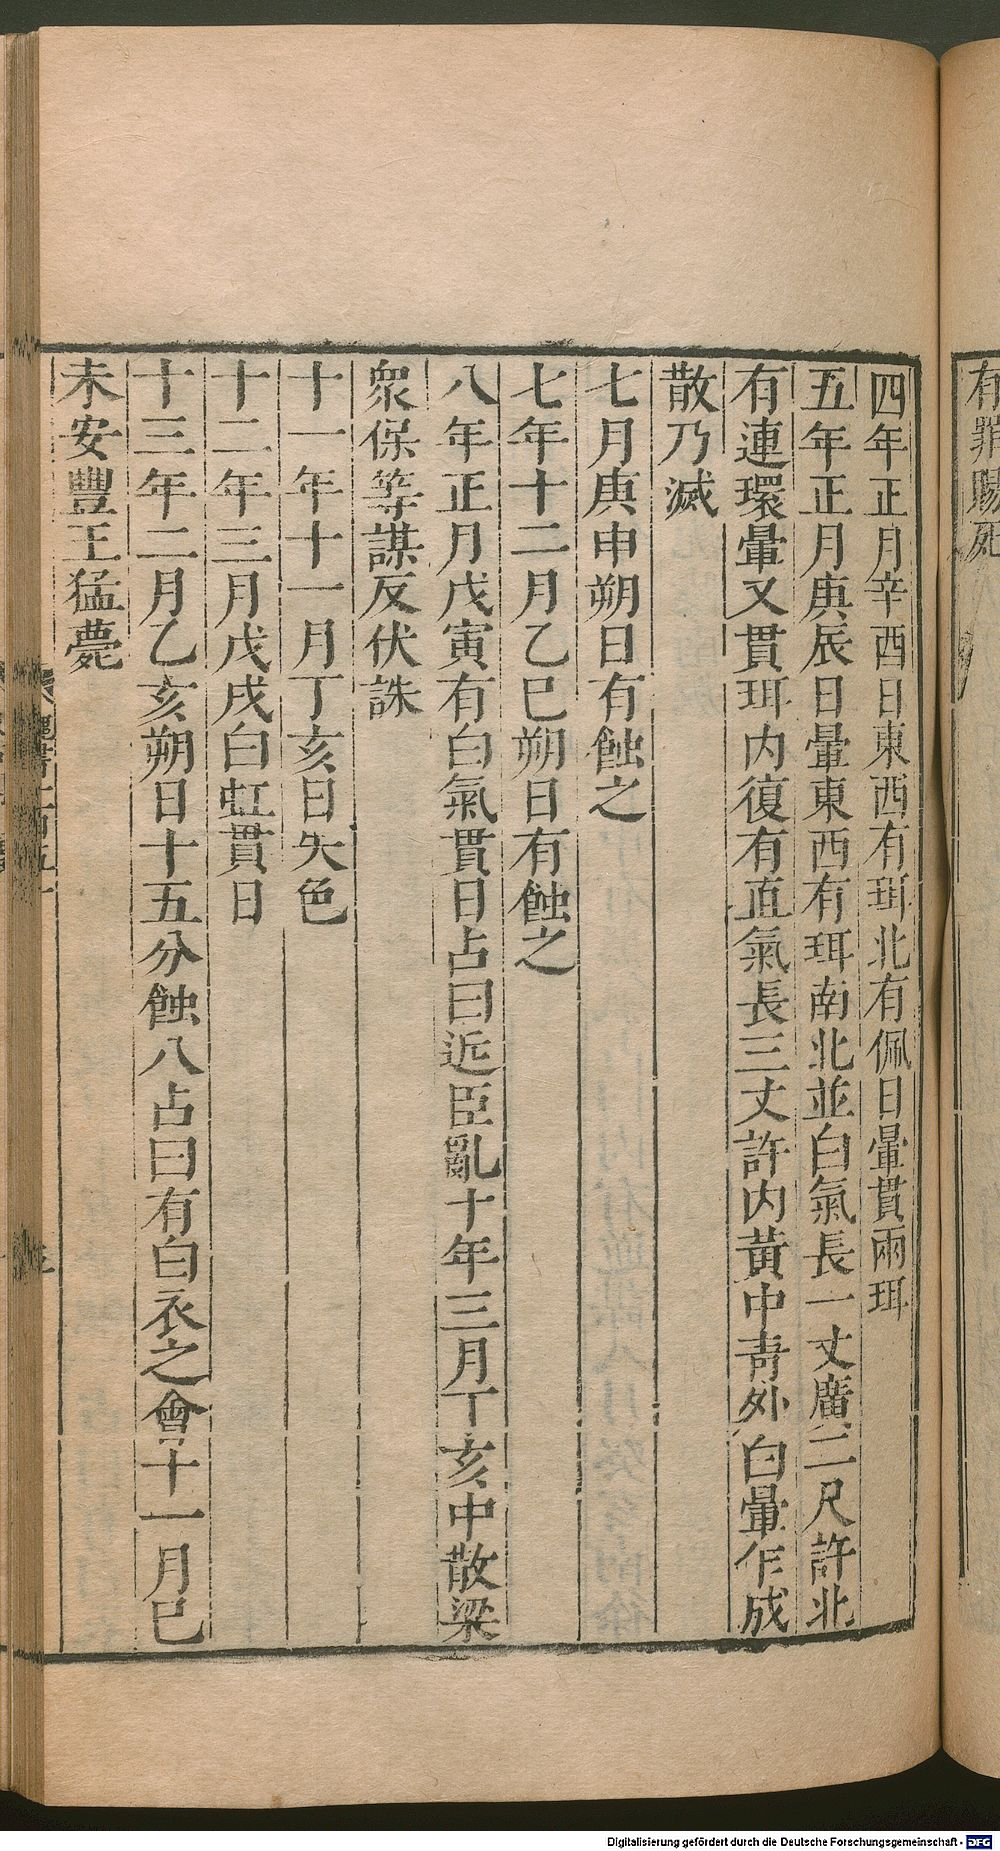 有罪賜死
四年正月辛酉日東西有珥北有佩日暈貫兩珥
五年正月庚辰日暈東西有珥南北並白氣長一丈廣二尺許北
有連環暈又貫珥内復有直氣長三丈許内黃中青外白暈乍成
散乃滅
七月庚申朔日有蝕之
七年十二月乙巳朔日有蝕之
八年正月戊寅有白氣貫日占曰近臣亂十年三月丁亥中散梁
衆保等謀反伏誅
十一年十一月丁亥日失色
十二年三月戊戌白虹貫日
十三年二月乙亥朔日十五分蝕八占曰有白衣之會十一月己
未安豐王猛薨
Digitalisierung gefördert durch die Deutsche Forschungsgemeinschaft - DFG